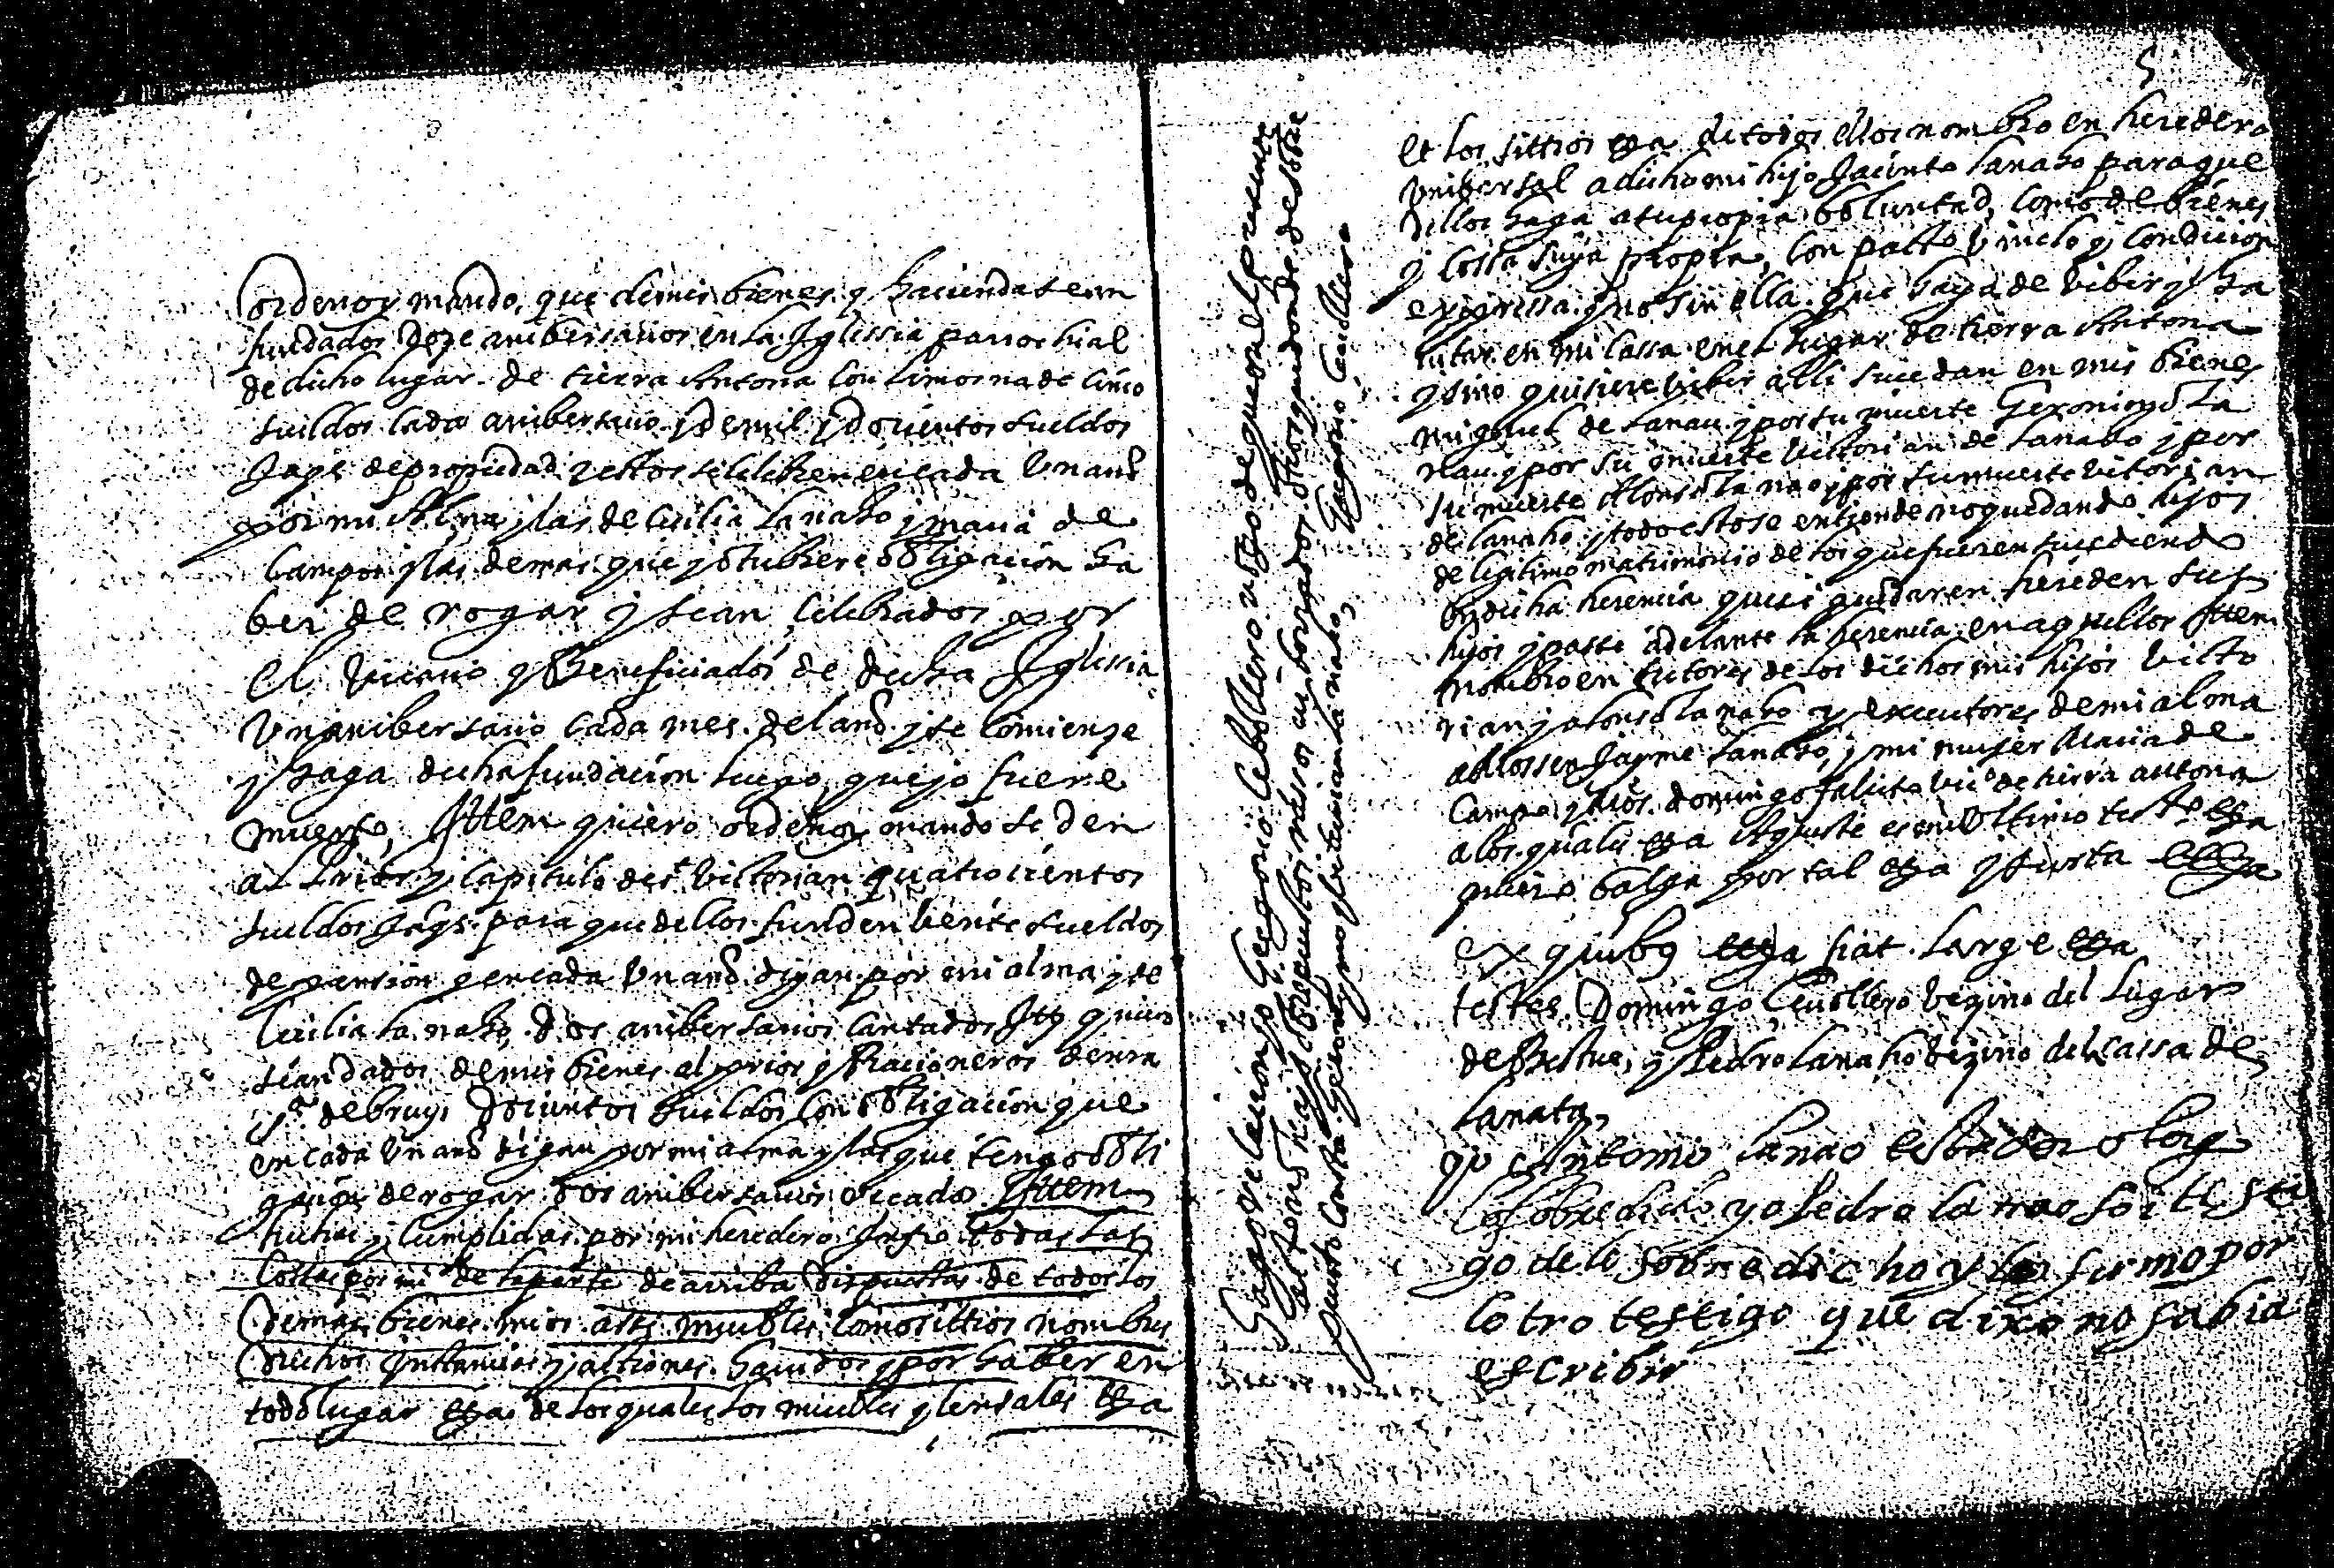 ordeno y mando, que de mis bienes y hacienda sean
fundados doze anibersarios en la Iglessia parrochial
de dicho lugar de tierra Antona con limosna de cinco
sueldos cada anibersario y de mil y docientos sueldos
Jaqs de propiedad y estos se celebren en cada un año
por mi Alma y las de Cicilia Lanaho y Maria de
Campo y las demas que yo tubiere obligacion ha
ber de rogar y sean celebrados por
el Vicario y Beneficiados de dicha Iglesia
Un anibersario cada mes del año y se comienze
y haga dicha fundacion luego que yo fuere
muerto, Ittem quiero ordeno y mando se den
al Prior y Capitulo de st Victorian quatrocientos
sueldos Jaqs. para que dellos funden bente sueldos
de pension y en cada un año digan por mi alma y de
Cicilia Lanaho, dos anibersarios cantados Itt quiero
sean dados de mis bienes al prior y Racioneros de nra
sra de bruis docientos sueldos con obligacion que
en cada Un año digan por mi alma y las que tengo obli
gacion de rogar dos anibersarios Ittem
hichas y cumplidas por mi heredero Infro todas las
cossas por mi de la parte de arriba dispuestas de todos los
demas bienes mios assi muebles como sittios nombres
drechos Instancias y actiones hauidos y por haber en
todo lugar etza de los quales los muebles y censales etza
5
et los sittios etza de todos ellos nombro en heredero
Unibersal a dicho mi hijo Jacinto Lanaho para que
dellos haga a su propia boluntad, como de bienes
y cossa suya propia, con pacto vinclo y condicion
expressa y no sin ella que haya de vibir y ha
bitar en mi cassa en el lugar de tierra Antona
y sino quisiere vibir alli sucedan en mis bienes
Miguel de Lanau y por su muerte Geronimo La
nau y por su muerte Victorian de Lanaho y por
su muerte Alonso Lanao y por su muerte Vitorian
de Lanaho y todo esto se entiende no quedando hijos
de legitimo matrimonio de los que fueren sucediendo
en dicha herencia que si quedaren hereden sus
hijos y passe adelante la herencia en aquellos Ittem
nombro en tutores de los dichos mis hijos Victo
rian y Alonso Lanaho y executores de mi alma
a Mossen Jayme Lanaho, y mi mujer Maria de
Campo y Mos. Domingo vico de tierra antona
a los quales etza Aqueste es mi Ultimo testo etza
quiero balga por tal etza y Justa etza
ex quibus etza fiat large etza
testes Domingo Ceuollero bezino del Lugar
de Bestue, y Pedro Lanaho bezino de la cassa de
Lanata
yo Antonio Lanao
lo sobredicho yo Pedro la nao soi testi
go de lo sobre dicho y lo firmo por
lo tro testigo que dixo no sabia
escribir
Hago relacion yo Gregorio Ceuollero notto de que en el presente